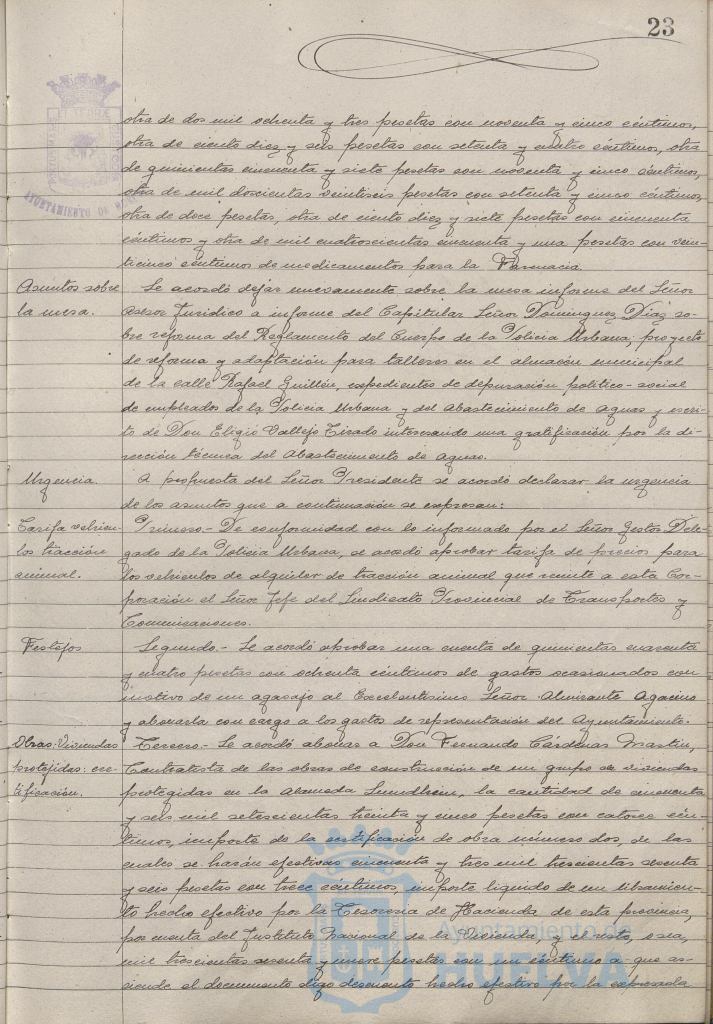 23
otra de dos mil ochenta y tres pesetas con noventa y cinco céntimos,
otra de ciento diez y seis pesetas con setenta y cuatro céntimos, otra
de quinientas cincuenta y siete pesetas con noventa y cinco céntimos,
otra de mil doscientas veintiseis pesetas con setenta y cinco céntimos,
otra de doce pesetas, otra de ciento diez y siete pesetas con cincuenta
céntimos y otra de mil cuatroscientas cincuenta y una pesetas con vein-
ticinco céntimos de medicamentos para la Farmacia.
Asuntos sobre la mesa.
Se acordó dejar nuevamente sobre la mesa informe del Señor
Asesor Jurídico a informe del Capitular Señor Dominguez Diaz so-
bre reforma del Reglamento del Cuerpo de la Policia Urbana; proyecto
de reforma y adaptación para talleres en el almacén municipal
de la calle Rafael Guillén, expedientes de depuración político-social
de empleados de la Policia Urbana y del Abastecimiento de Aguas y escri-
to de Don Eligio Vallejo Tirado interesando una gratificación por la di-
rección técnica del Abastecimiento de Aguas.
Urgencia.
A propuesta del Señor Presidente se acordó declarar la urgencia
de los asuntos que a continuación se expresan:
Tarifa vehícu-
los tracción
animal.
Primero.- De conformidad con lo informado por el Señor Gestor Dele-
gado de la Policia Urbana, se acordó aprobar tarifa de precios para
los vehiculos de alquiler de tracción animal que remite a esta Cor-
poración el Señor Jefe del Sindicato Provincial de Transportes y
Comunicaciones.
Festejos
Segundo.- Se acordó aprobar una cuenta de quinientas cuarenta
y cuatro pesetas con ochenta céntimos de gastos ocasionados con
motivo de un agasajo al Excelentísimo Señor Almirante Agacino
y abonarla con cargo a los gastos de representación del Ayuntamiento.
Obras: Viviendas
protejidas: cer-
tificación.
Tercero.- Se acordó abonar a Don Fernando Cárdenas Martin,
Contratista de las obras de construcción de un grupo de viviendas
protegidas en la Alameda Sundheim, la cantidad de cincuenta
y seis mil setescientas treinta y cinco pesetas con catorce cén-
timos, importe de la certificación de obra número dos, de las
cuales se harán efectivas cincuenta y tres mil trescientas sesenta
y seis pesetas con trece céntimos, importe líquido de un libramien-
to hecho efectivo por la Tesorería de Hacienda de esta provincia,
por cuenta del Instituto Nacional de la Vivienda, y el resto, o sea,
mil trescientas sesenta y nueve pesetas con un céntimo a que as-
ciende el documento digo descuento hecho efectivo por la expresada
AYUNTAMIENTO DE
Ayuntamiento de
HUELVA